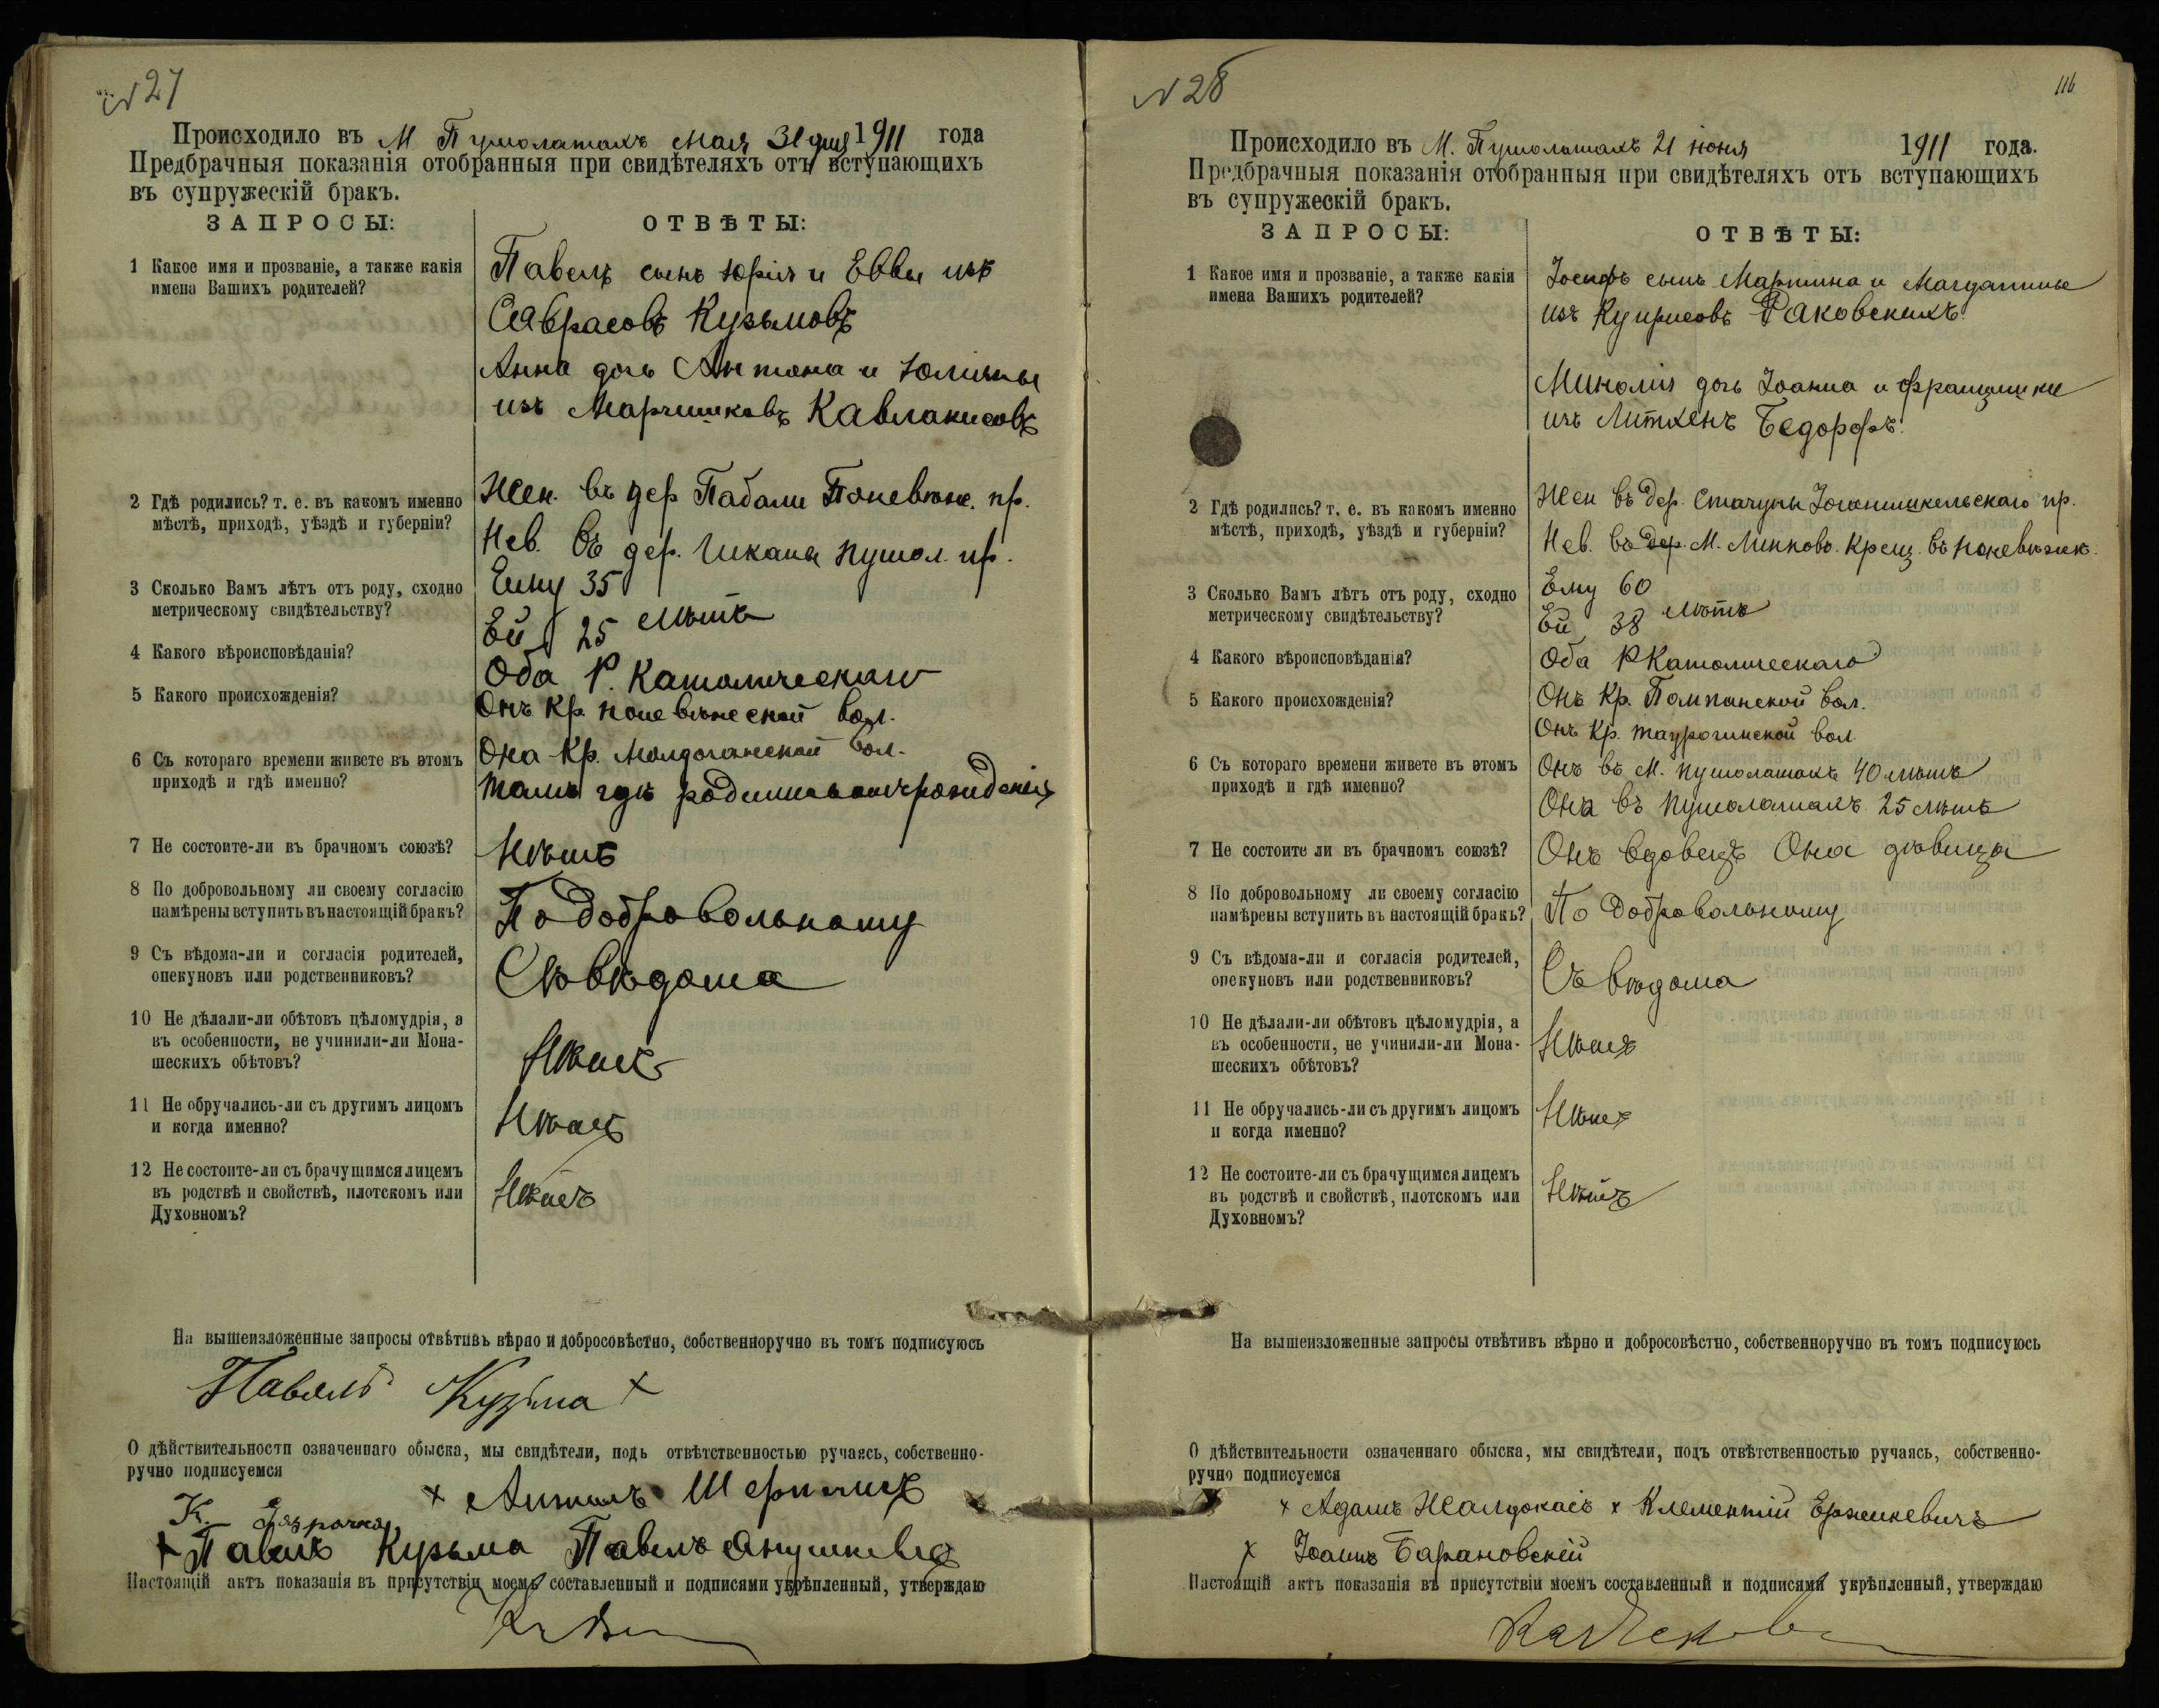 N 27
Происходило въ М Пумолатахъ мая 31 дня 1911 года
Предбрачныя показанія отобранныя при свидѣтеляхъ отъ вступающихъ
въ супружескій бракъ.
ЗАПРОСЫ: ОТВѢТЫ:
1 Какое имя и прозваніе, а также какія
имена Вашихъ родителей?
Павелъ сынъ Юрія и Еввы изъ
Саврасовъ Кузьмовъ
Анна дочь Антона и Юліянны
изъ
2 Гдѣ родились? т. е. въ какомъ именно
мѣстѣ, приходѣ, уѣздѣ и губерніи?
Жен. въ дер Пабали Поневѣж. пр.
Нев. въ дер. Чиканы пушол. пр.
3 Сколько Вамъ лѣтъ отъ роду, сходно
метрическому свидѣтельству?
Ему 35
Ей 25 лѣтъ
4 Какого вѣроисповѣданія?
Оба Р. Католическаго
5 Какого происхожденія?
Онъ Кр. поневѣжской вол.
Она Кр. вол.
6 Съ котораго времени живете въ этомъ
приходѣ и гдѣ именно?
Тамъ гдѣ родились отъ рожденія
7 Не состоите-ли въ брачномъ союзѣ?
Нѣтъ
8 По добровольному ли своему согласію
намѣрены вступить въ настоящій бракъ?
По добровольному
9 Съ вѣдома-ли и согласія родителей,
опекуновъ или родственниковъ?
Съ вѣдома
10 Не дѣлали-ли обѣтовъ цѣломудрія, а
въ особенности, не учинили-ли Мона-
шескихъ обѣтовъ?
Нѣтъ
11 Не обручались-ли съ другимъ лицомъ
и когда именно?
Нѣтъ
12 Не состоите-ли съ брачущимся лицемъ
въ родствѣ и свойствѣ, плотскомъ или
Духовномъ?
Нѣтъ
На вышеизложенные запросы отвѣтивъ вѣрно и добросовѣстно, собственноручно въ томъ подписуюсь
Павелъ Кузьма +
О дѣйствительности означеннаго обыска, мы свидѣтели, подъ отвѣтственностью ручаясь, собственно-
ручно подписуемся
+ Антонъ
+ Павелъ Кузьма Павелъ
Настоящій актъ показанія въ присутствіи моемъ составленный и подписями укрѣпленный, утверждаю
N 28
116
Происходило въ М. Пушолатахъ 21 іюня 1911 года.
Предбрачныя показанія отобранныя при свидѣтеляхъ отъ вступающихъ
въ супружескій бракъ.
ЗАПРОСЫ: ОТВѢТЫ:
1 Какое имя и прозваніе, а также какія
имена Вашихъ родителей?
Іосифъ сынъ Мартина и Магдалины
изъ Куприсовъ Раковскихъ
дочь Іоанна и Францишки
изъ Литкенъ Бедорфъ.
2 Гдѣ родились? т. е. въ какомъ именно
мѣстѣ, приходѣ, уѣздѣ и губерніи?
Жен въ дер. Стачуны Іоганишкельскаго пр.
Нев. въ дер. М. Линково. Крещ. въ поневѣжѣ.
3 Сколько Вамъ лѣтъ отъ роду, сходно
метрическому свидѣтельству?
Ему 60
Ей 38 лѣтъ
4 Какого вѣроисповѣданія?
Оба Р Католическаго
5 Какого происхожденія?
Онъ Кр. Помпянской вол.
Онъ Кр. таурогинской вол
6 Съ котораго времени живете въ этомъ
приходѣ и гдѣ именно?
Онъ въ М. пушолатахъ 40 лѣтъ
Она въ пушолатахъ 25 лѣтъ
7 Не состоите ли въ брачномъ союзѣ?
Онъ вдовецъ Она дѣвица
8 По добровольному ли своему согласію
намѣрены вступить въ настоящій бракъ?
По добровольному
9 Съ вѣдома-ли и согласія родителей,
опекуновъ или родственниковъ?
Съ вѣдома
10 Не дѣлали-ли обѣтовъ цѣломудрія, а
въ особенности, не учинили-ли Мона-
шескихъ обѣтовъ?
Нѣтъ
11 Не обручались-ли съ другимъ лицомъ
и когда именно?
Нѣтъ
12 Не состоите-ли съ брачущимся лицемъ
въ родствѣ и свойствѣ, плотскомъ или
Духовномъ?
Нѣтъ
На вышеизложенные запросы отвѣтивъ вѣрно и добросовѣстно, собственноручно въ томъ подписуюсь
О дѣйствительности означеннаго обыска, мы свидѣтели, подъ отвѣтственностью ручаясь, собственно-
ручно подписуемся
+ Адамъ Жалдокасъ + Клементій Ержикевичъ
+ Іоаннъ Барановскій
Настоящій актъ показанія въ присутствіи моемъ составленный и подписями укрѣпленный, утверждаю